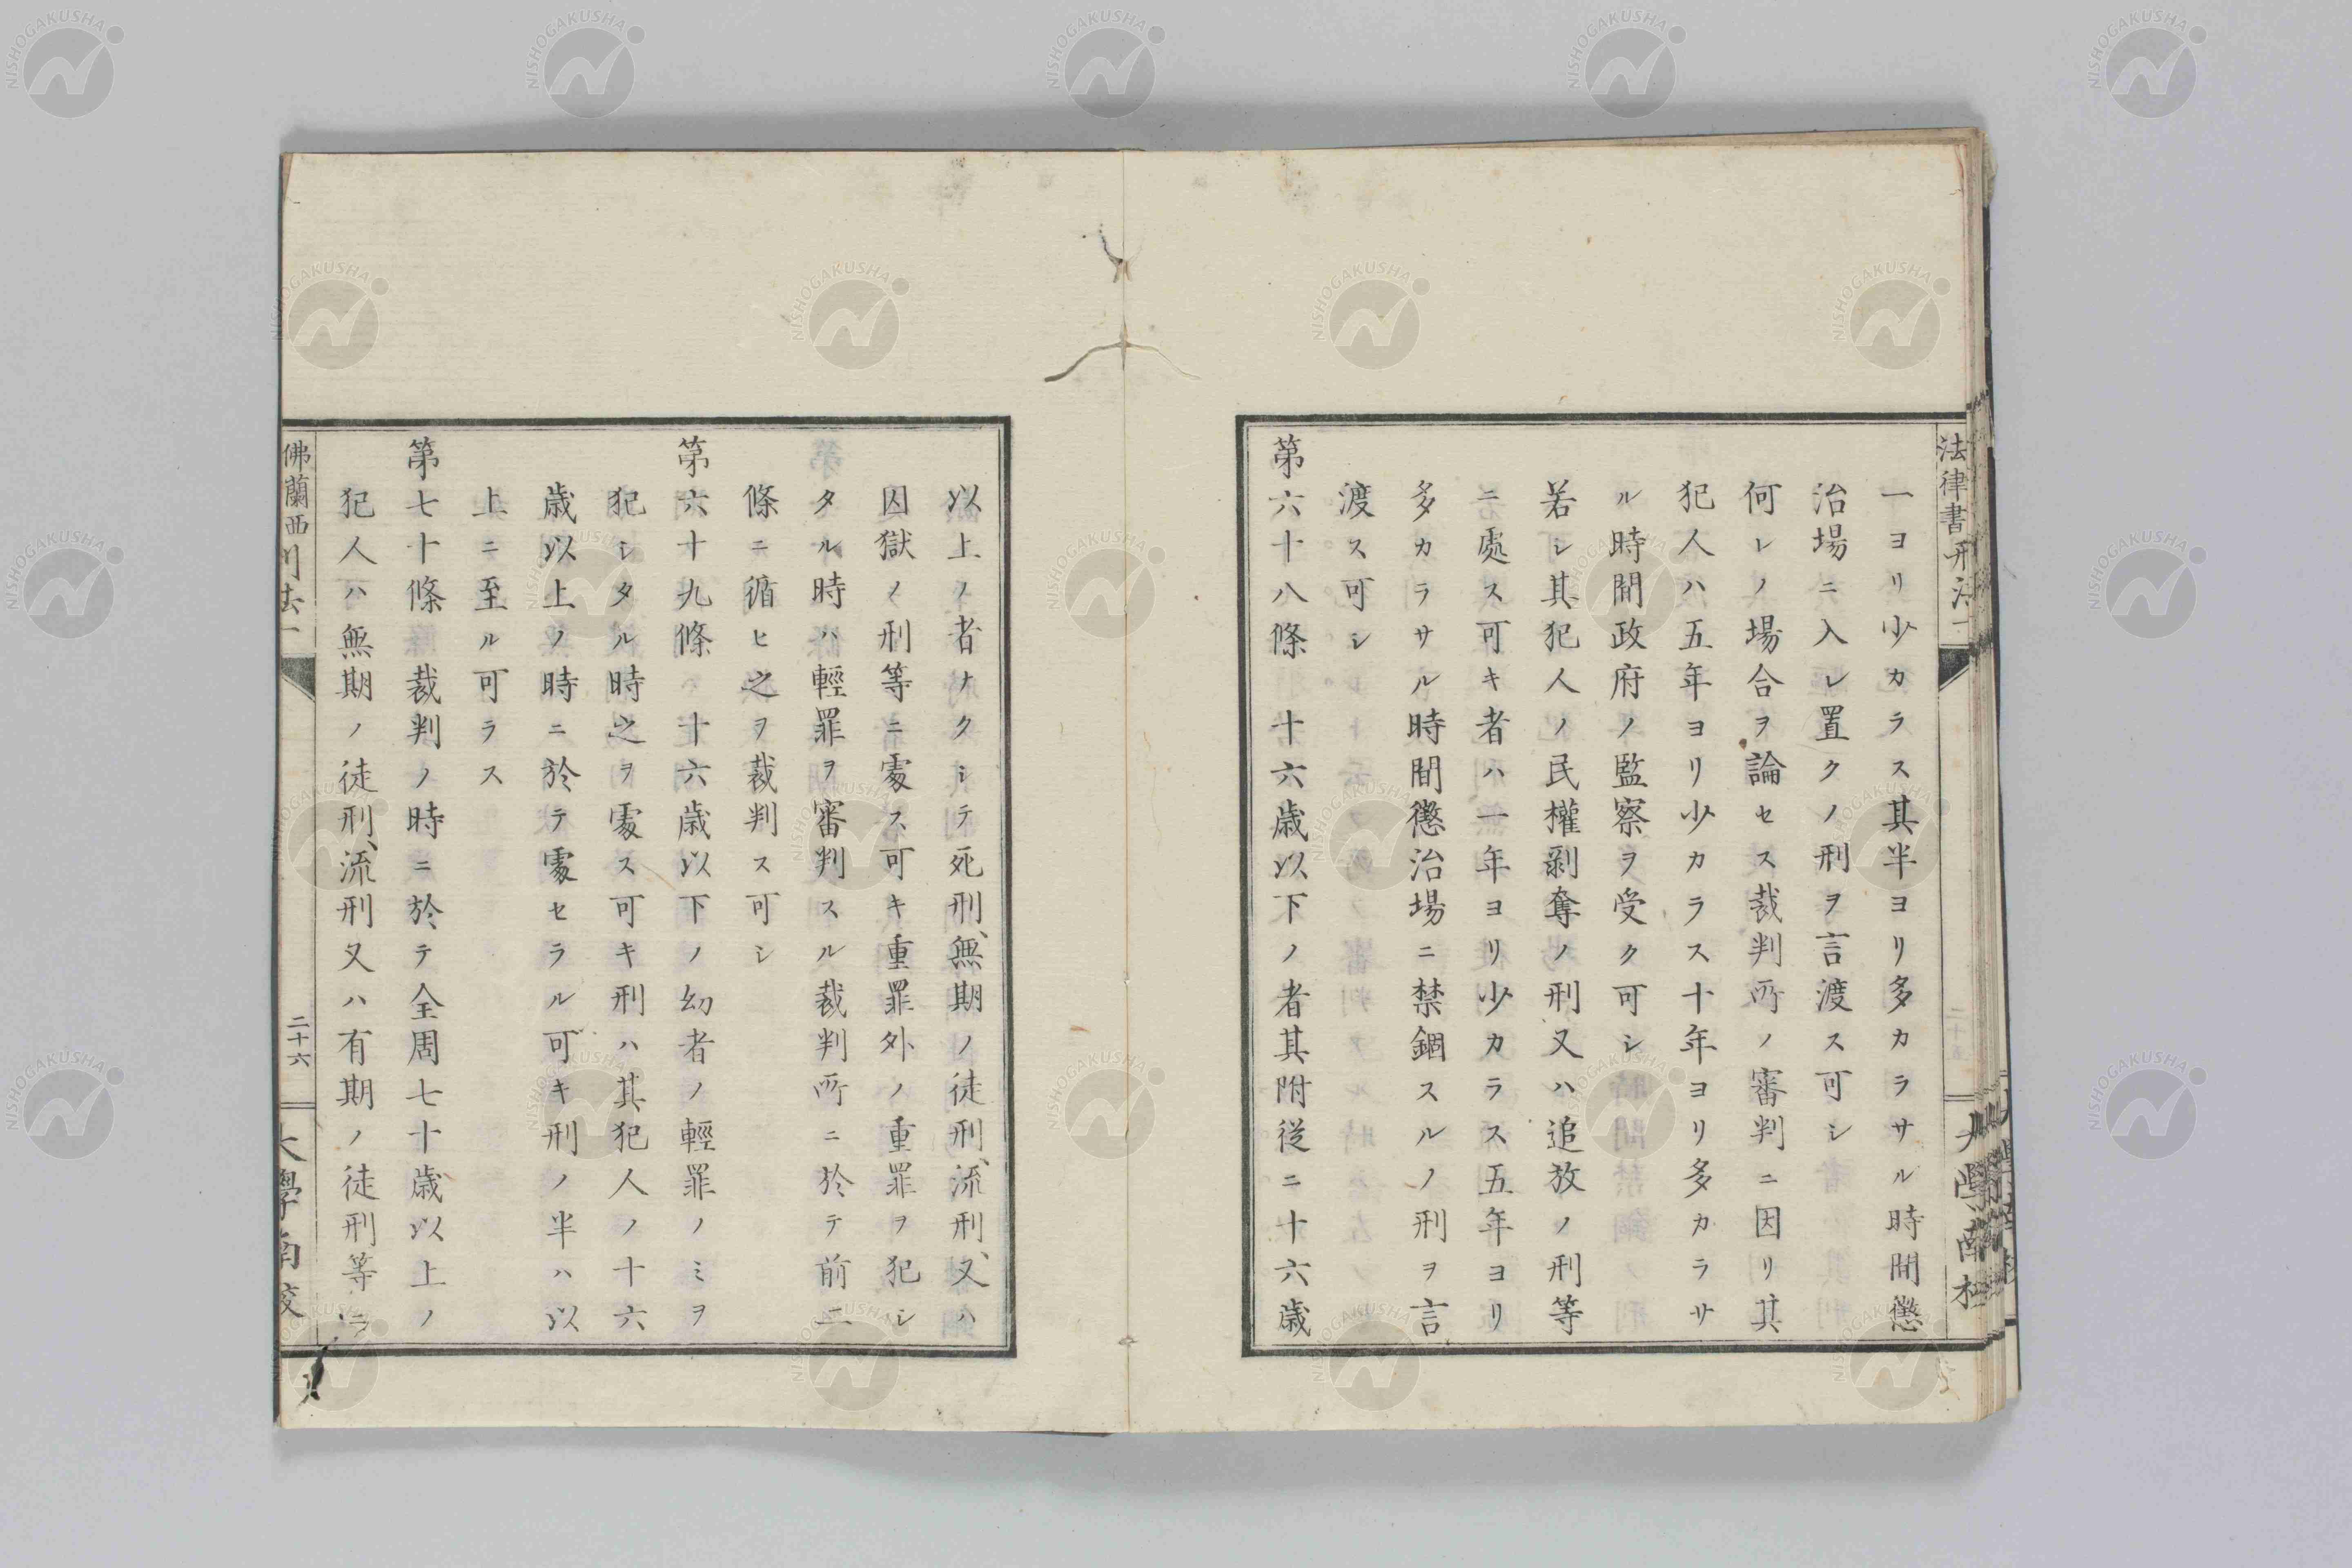 法律書刑法一
一ヨリ少カラス其半ヨリ多カラサル時間懲
治場ニ入レ置クノ刑ヲ言渡ス可シ
何レノ場合ヲ論セス裁判所ノ審判ニ因リ其
犯人ハ五年ヨリ少カラス十年ヨリ多カラサ
ル時間政府ノ監察ヲ受ク可シ
若シ其犯人ノ民權剥奪ノ刑又ハ追放ノ刑等
ニ處ス可キ者ハ一年ヨリ少カラス五年ヨリ
多カラサル時間懲治場ニ禁錮スルノ刑ヲ言
渡ス可シ
第六十八條 十六歳以下ノ者其附從ニ十六歳
以上ノ者ナクシテ死刑、無期ノ徒刑、流刑、又ハ
囚獄ノ刑等ニ處ス可キ重罪外ノ重罪ヲ犯シ
タル時ハ輕罪ヲ審判スル裁判所ニ於テ前二
條ニ循ヒ之ヲ裁判ス可シ
第六十九條 十六歳以下ノ幼者ノ輕罪ノミヲ
犯シタル時之ヲ處ス可キ刑ハ其犯人ノ十六
歳以上ノ時ニ於テ處セラル可キ刑ノ半ハ以
上ニ至ル可ラス
第七十條 裁判ノ時ニ於テ全周七十歳以上ノ
犯人ハ無期ノ徒刑、流刑又ハ有期ノ徒刑等ニ
佛蘭西刑法一
二十六
大學南校
NISHOGAKUSHA